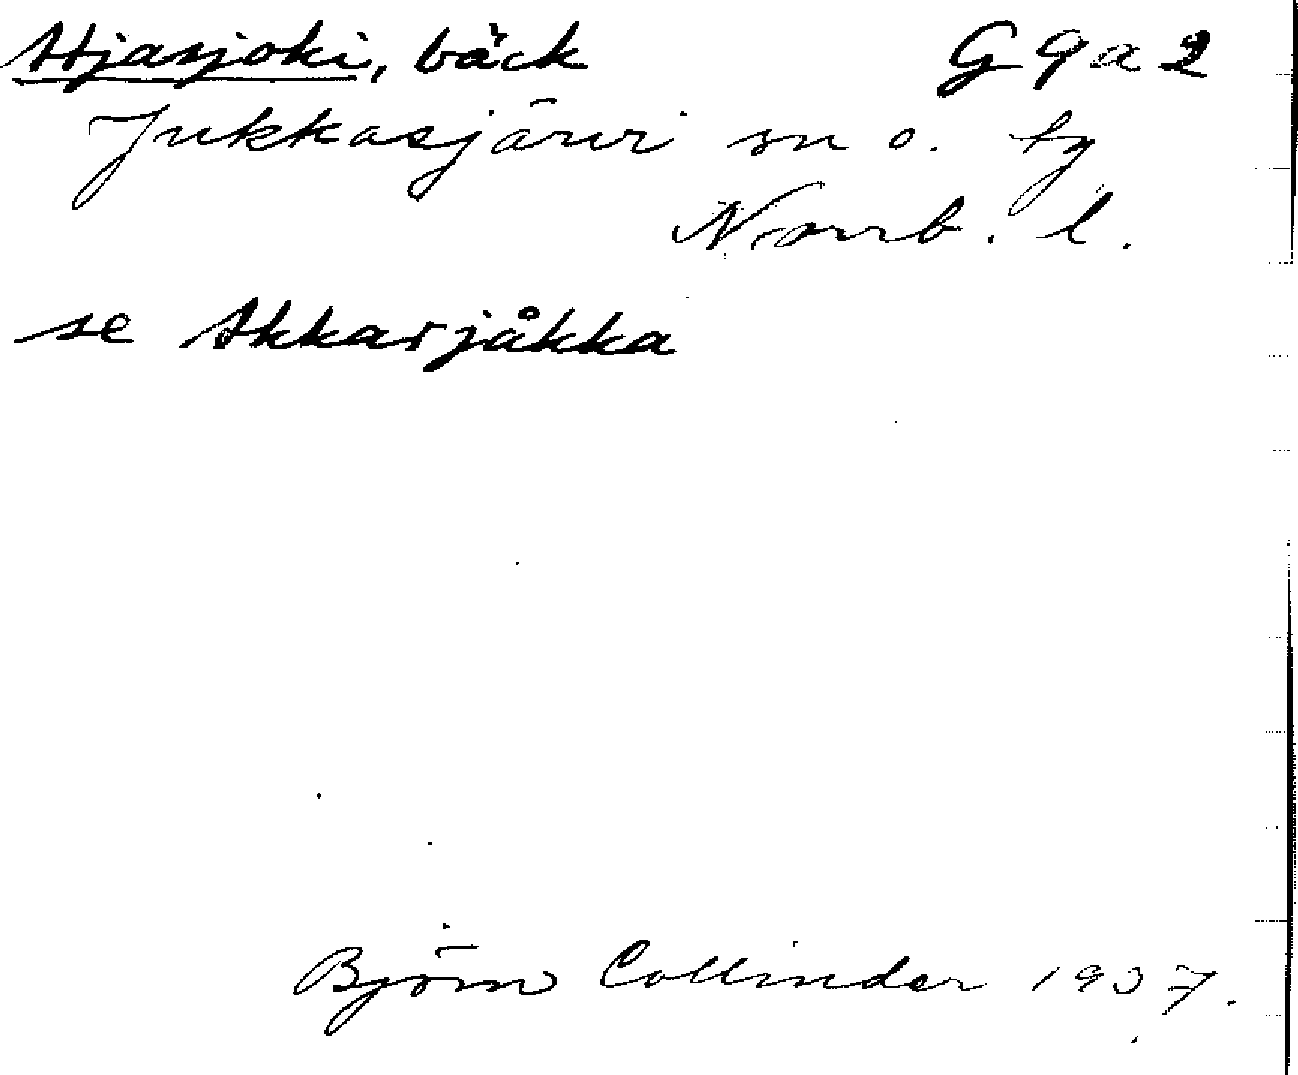 Hjasjoki, bäck G 9 a 2
Jukkasjärvi sn o. tg
Norrb. l.
se Akkarjåkka
Björn Collinder 1937.